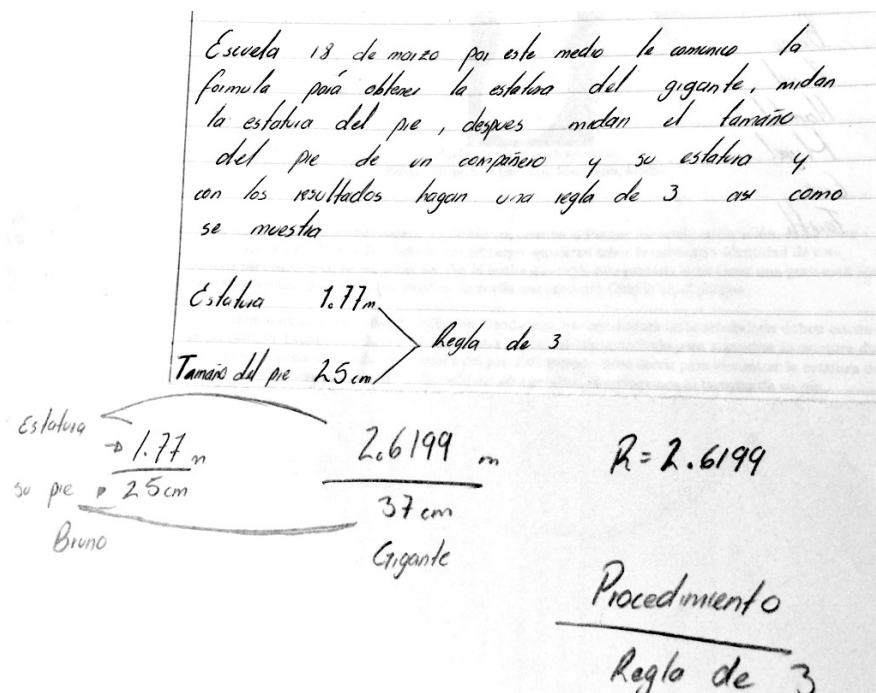 Escuela 18 de marzo por este medio le comunico la
formula para obtener la estatura del gigante, midan
la estatura del pie, despues midan el tamaño
del pie de un compañero y su estatura y
con los resultados hagan una regla de 3 asi como
se muestra
Estatura 1.77m
Regla de 3
Tamaño del pie 25cm
Estatura
1.77 m
su pie 25cm
Bruno
2.6199 m
37 cm
Gigante
R=2.6199
Procedimiento
Regla de 3